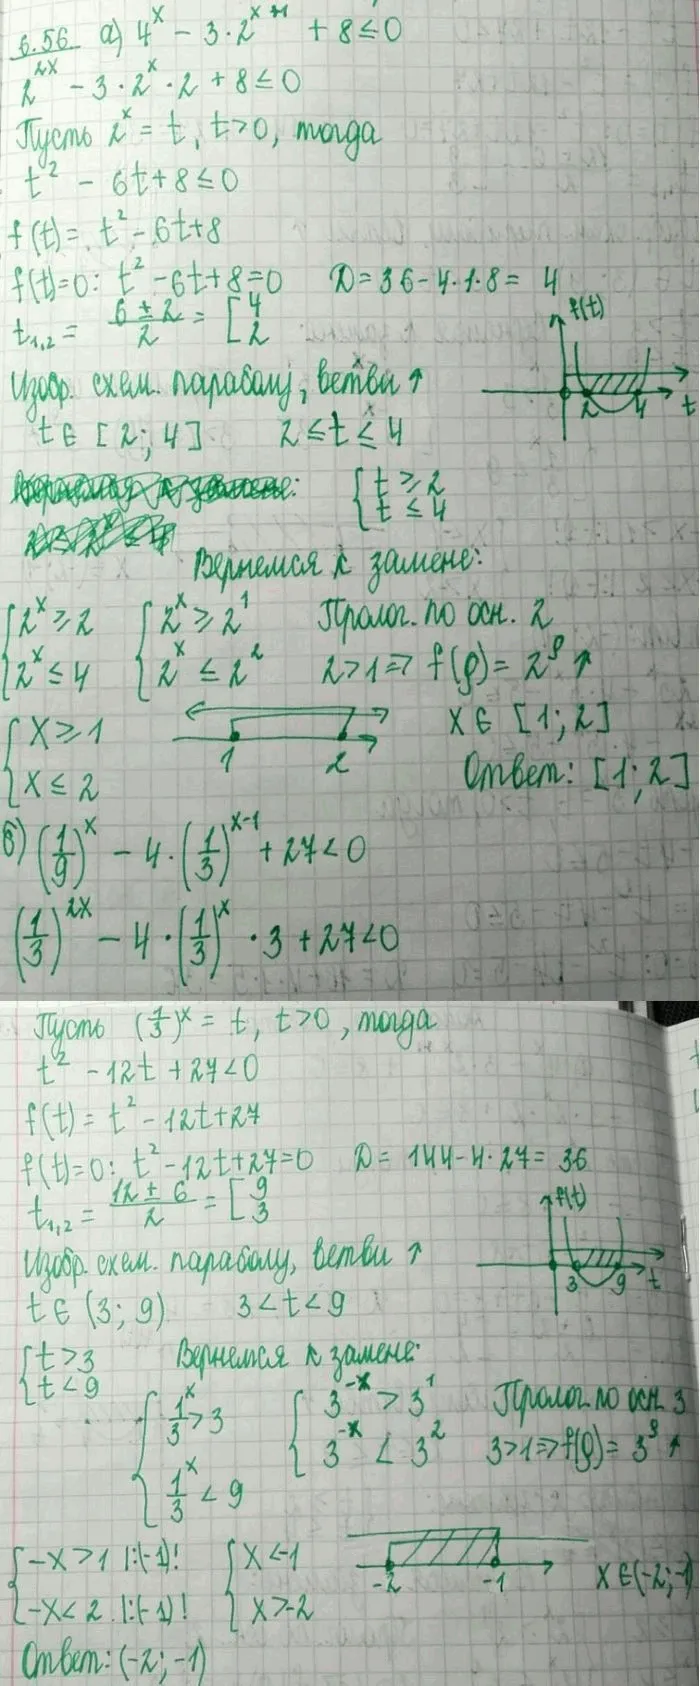 6.56 а) 4^x - 3·2^{x+1} + 8 ≤ 0
2^{2x} - 3·2^x·2 + 8 ≤ 0
Пусть 2^x = t, t>0, тогда
t^2 - 6t + 8 ≤ 0
f(t) = t^2 - 6t + 8
f(t)=0: t^2 - 6t + 8 = 0 D = 36 - 4·1·8 = 4
t_{1,2} = \frac{6 ± 2}{2} = [ 4 2
f(t)
Изобр. схем. параболу, ветви ↑
2 4 t
t ∈ [2; 4] 2 ≤ t ≤ 4
{ t ≥ 2
t ≤ 4
Вернемся к замене:
{ 2^x ≥ 2 { 2^x ≥ 2^1 Пролог. по осн. 2
2^x ≤ 4 2^x ≤ 2^2 2>1 ⇒ f(ρ) = 2^ρ ↑
{ x ≥ 1 x ∈ [1; 2]
x ≤ 2 1 2 Ответ: [1; 2]
б) (\frac{1}{9})^x - 4·(\frac{1}{3})^{x-1} + 27 < 0
(\frac{1}{3})^{2x} - 4·(\frac{1}{3})^x · 3 + 27 < 0
Пусть (\frac{1}{3})^x = t, t>0, тогда
t^2 - 12t + 27 < 0
f(t) = t^2 - 12t + 27
f(t)=0: t^2 - 12t + 27 = 0 D = 144 - 4·27 = 36
t_{1,2} = \frac{12 ± 6}{2} = [ 9 3
f(t)
Изобр. схем. параболу, ветви ↑
3 9 t
t ∈ (3; 9) 3 < t < 9
{ t > 3 Вернемся к замене:
t < 9
{ \frac{1}{3}^x > 3 { 3^{-x} > 3^1 Пролог. по осн. 3
\frac{1}{3}^x < 9 3^{-x} < 3^2 3>1 ⇒ f(ρ) = 3^ρ ↑
{ -x > 1 |:(-1)! { x < -1
-x < 2 |:(-1)! x > -2 -2 -1 x ∈ (-2; -1)
Ответ: (-2; -1)